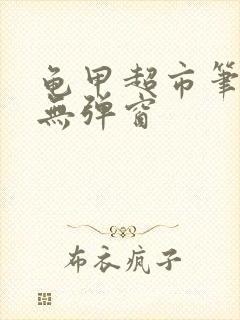 龟甲超市笔
無弹窗
布衣疯子